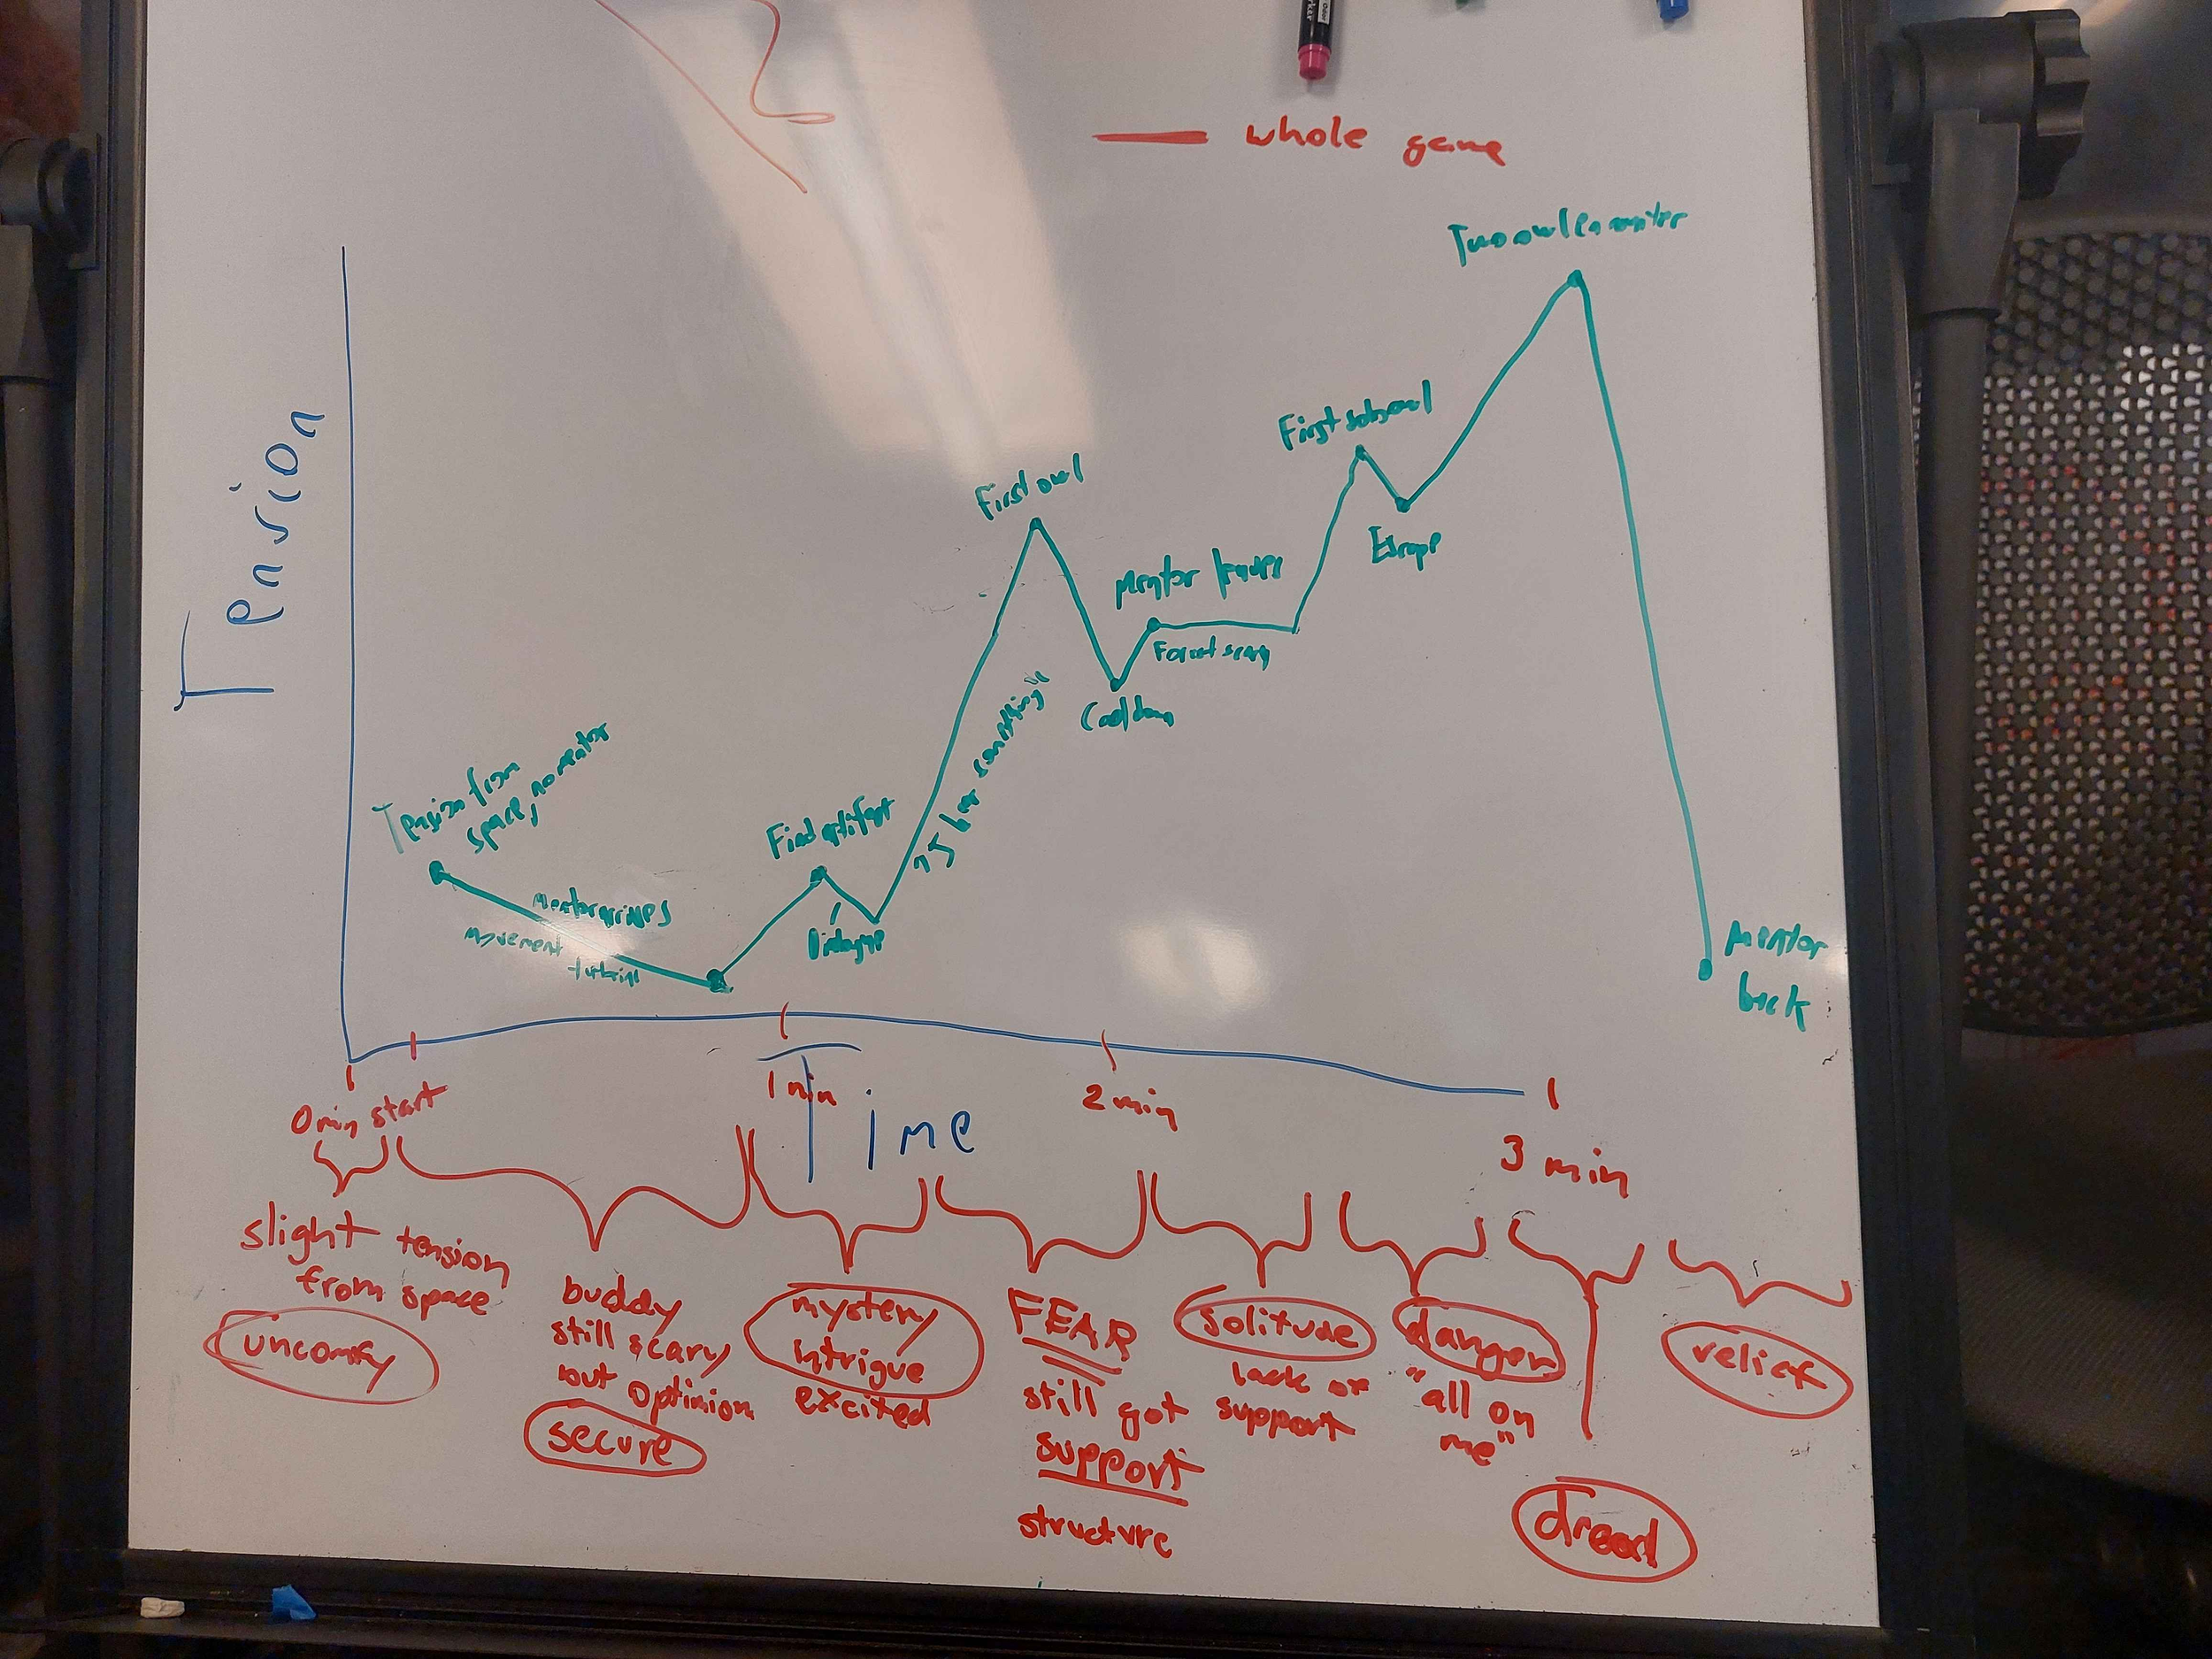 whole game
Tension
Two owl encounter
First owl
First solo owl
Escape
Mentor leaves
Forest scary
Cool down
"I hear something"
Tension from
space, no mentor
Find artifact
Mentor arrives
Movement
tutorial
Dialogue
Mentor
back
0 min start
1 min
2 min
3 min
Time
slight tension
from space
uncomfy
buddy
still scary
but optimism
secure
mystery
intrigue
excited
FEAR
still got
support
structure
solitude
lack of
support
danger
"all on
me"
dread
relief